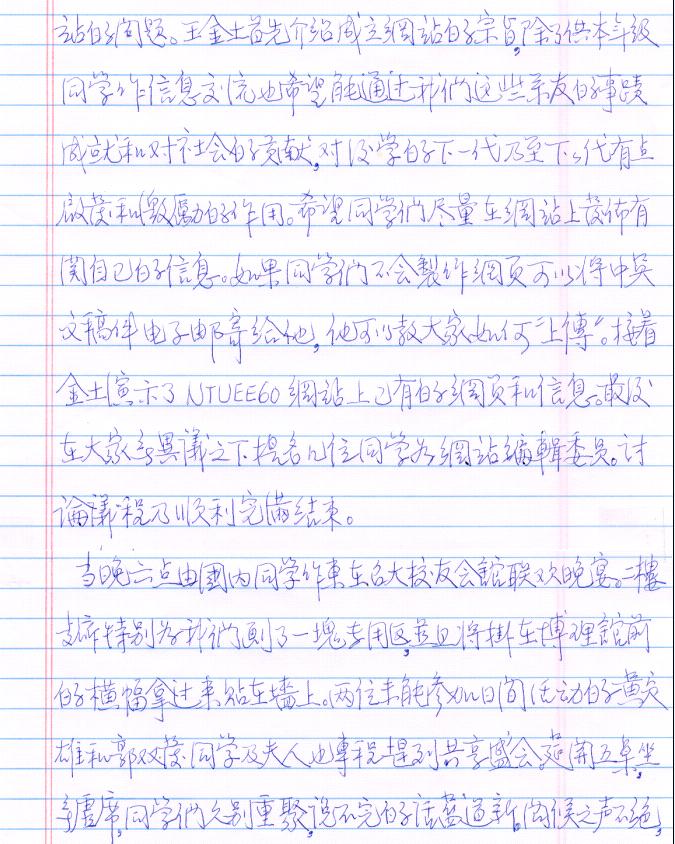 站的问题。王金土首先介绍成立網站的宗旨,除了供本年级
同学作信息交流也希望能通过我們这些系友的事蹟
成就和对社会的貢献,对後学的下一代乃至下下代有点
啟發和激勵的作用。希望同学們尽量在網站上發佈有
関自己的信息。如果同学們不会製作網页可以将中英
文稿件电子邮寄给他,他可以教大家如何“上傳”。接着
金土演示了NTUEE60網站上已有的網页和信息。最後
在大家无異議之下提名几位同学为網站編輯委员。討
論議程乃順利完满结束。
当晚六点由國内同学作東在台大校友会館联欢晚宴。二樓
支席特别为我們劃了一塊专用区,並且将掛在博理館前
的横幅拿过来贴在墙上。两位未能参加日间活动的黄炎
雄和郭双發同学及夫人也專程趕到共享盛会。筵開五桌,坐
无虚席,同学們久别重聚,说不完的话舊道新,问候之声不绝,